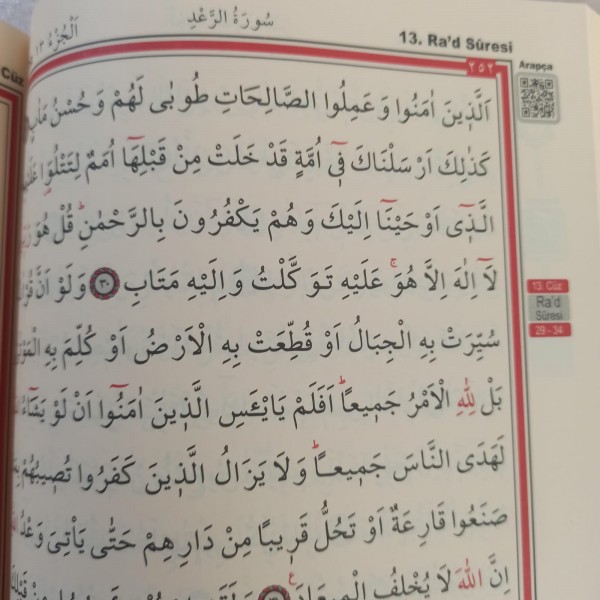 اَلْجُزْءُ ١٣
سُورَةُ الرَّعْدِ
13. Ra'd Sûresi
٢٥٢
Arapça
Cüz
اَلَّذ۪ينَ اٰمَنُوا وَعَمِلُوا الصَّالِحَاتِ طُوبٰى لَهُمْ وَحُسْنُ مَاٰبٍ
كَذٰلِكَ اَرْسَلْنَاكَ ف۪ٓي اُمَّةٍ قَدْ خَلَتْ مِنْ قَبْلِهَٓا اُمَمٌ لِتَتْلُوَ۬ا
الَّذ۪ٓي اَوْحَيْنَٓا اِلَيْكَ وَهُمْ يَكْفُرُونَ بِالرَّحْمٰنِۜ قُلْ هُوَ
لَٓا اِلٰهَ اِلَّا هُوَۚ عَلَيْهِ تَوَكَّلْتُ وَاِلَيْهِ مَتَابِ ٣٠ وَلَوْ اَنَّ
سُيِّرَتْ بِهِ الْجِبَالُ اَوْ قُطِّعَتْ بِهِ الْاَرْضُ اَوْ كُلِّمَ بِهِ
بَلْ لِلّٰهِ الْاَمْرُ جَم۪يعاًۜ اَفَلَمْ يَايْـَٔسِ الَّذ۪ينَ اٰمَنُٓوا اَنْ لَوْ يَشَٓاءُ
لَهَدَى النَّاسَ جَم۪يعاًۜ وَلَا يَزَالُ الَّذ۪ينَ كَفَرُوا تُص۪يبُهُمْ
صَنَعُوا قَارِعَةٌ اَوْ تَحُلُّ قَر۪يباً مِنْ دَارِهِمْ حَتّٰى يَأْتِيَ وَعْدُ
اِنَّ اللّٰهَ لَا يُخْلِفُ الْم۪يعَادَ۟
13. Cüz
Ra'd
Sûresi
29 - 34